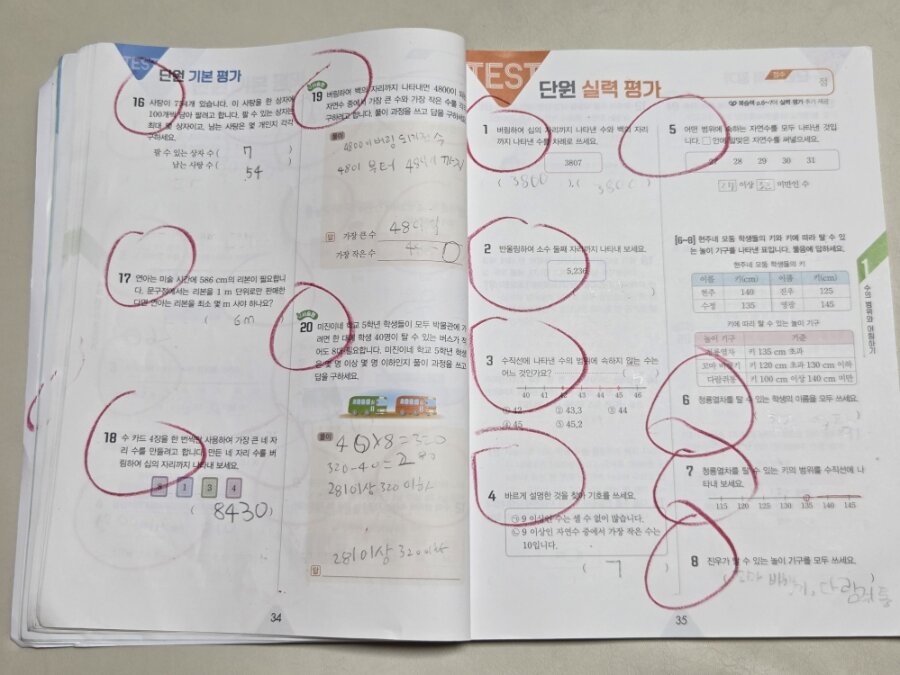 TEST
단원 기본 평가
16 사탕이 754개 있습니다. 이 사탕을 한 상자에
100개씩 담아 팔려고 합니다. 팔 수 있는 상자는
최대 몇 상자이고, 남는 사탕은 몇 개인지 각각
구하세요.
팔 수 있는 상자 수 ( 7 )
남는 사탕 수 ( 54 )
17 연아는 미술 시간에 586 cm의 리본이 필요합니
다. 문구점에서는 리본을 1 m 단위로만 판매한
다면 연아는 리본을 최소 몇 m 사야 하나요?
( 6m
18 수 카드 4장을 한 번씩만 사용하여 가장 큰 네 자
리 수를 만들려고 합니다. 만든 네 자리 수를 버
림하여 십의 자리까지 나타내 보세요.
8 1 3 4
( 8430 )
19 버림하여 백의 자리까지 나타내면 4800이 되는
자연수 중에서 가장 큰 수와 가장 작은 수를
구하려고 합니다. 풀이 과정을 쓰고 답을 구하세요.
풀이
답 가장 큰 수
가장 작은 수
20 미진이네 학교 5학년 학생들이 모두 박물관에 가
려면 한 대에 학생 40명이 탈 수 있는 버스가 적
어도 8대 필요합니다. 미진이네 학교 5학년 학생
은 몇 명 이상 몇 명 이하인지 풀이 과정을 쓰고
답을 구하세요.
풀이
40×8=320
320-40=280
281이상 320이하
281이상 320이하
답
34
TEST
단원 실력 평가
점수
점
1 버림하여 십의 자리까지 나타낸 수와 백의 자리
까지 나타낸 수를 차례로 쓰세요.
3807
2 반올림하여 소수 둘째 자리까지 나타내 보세요.
5.236
3 수직선에 나타낸 수의 범위에 속하지 않는 수는
어느 것인가요?
40 41 42 43 44 45 46
① 42 ② 43.3 ③ 44
④ 45 ⑤ 45.2
4 바르게 설명한 것을 찾아 기호를 쓰세요.
㉠ 9 이상인 수는 셀 수 없이 많습니다.
㉡ 9 이상인 자연수 중에서 가장 작은 수는
10입니다.
5 어떤 범위에 속하는 자연수를 모두 나타낸 것입
니다. □ 안에 알맞은 자연수를 써넣으세요.
28 29 30 31
이상 미만인 수
[6~8] 현주네 모둠 학생들의 키와 키에 따라 탈 수 있
는 놀이 기구를 나타낸 표입니다. 물음에 답하세요.
현주네 모둠 학생들의 키
이름 키(cm) 이름 키(cm)
현주 140 진우 125
수정 135 영광 145
키에 따라 탈 수 있는 놀이 기구
놀이 기구 기준
청룡열차 키 135 cm 초과
꼬마 비행기 키 120 cm 초과 130 cm 이하
다람쥐통 키 100 cm 이상 140 cm 미만
6 청룡열차를 탈 수 있는 학생의 이름을 모두 쓰세요.
7 청룡열차를 탈 수 있는 키의 범위를 수직선에 나
타내 보세요.
115 120 125 130 135 140 145
8 진우가 탈 수 있는 놀이 기구를 모두 쓰세요.
1
수의 범위와 어림하기
35